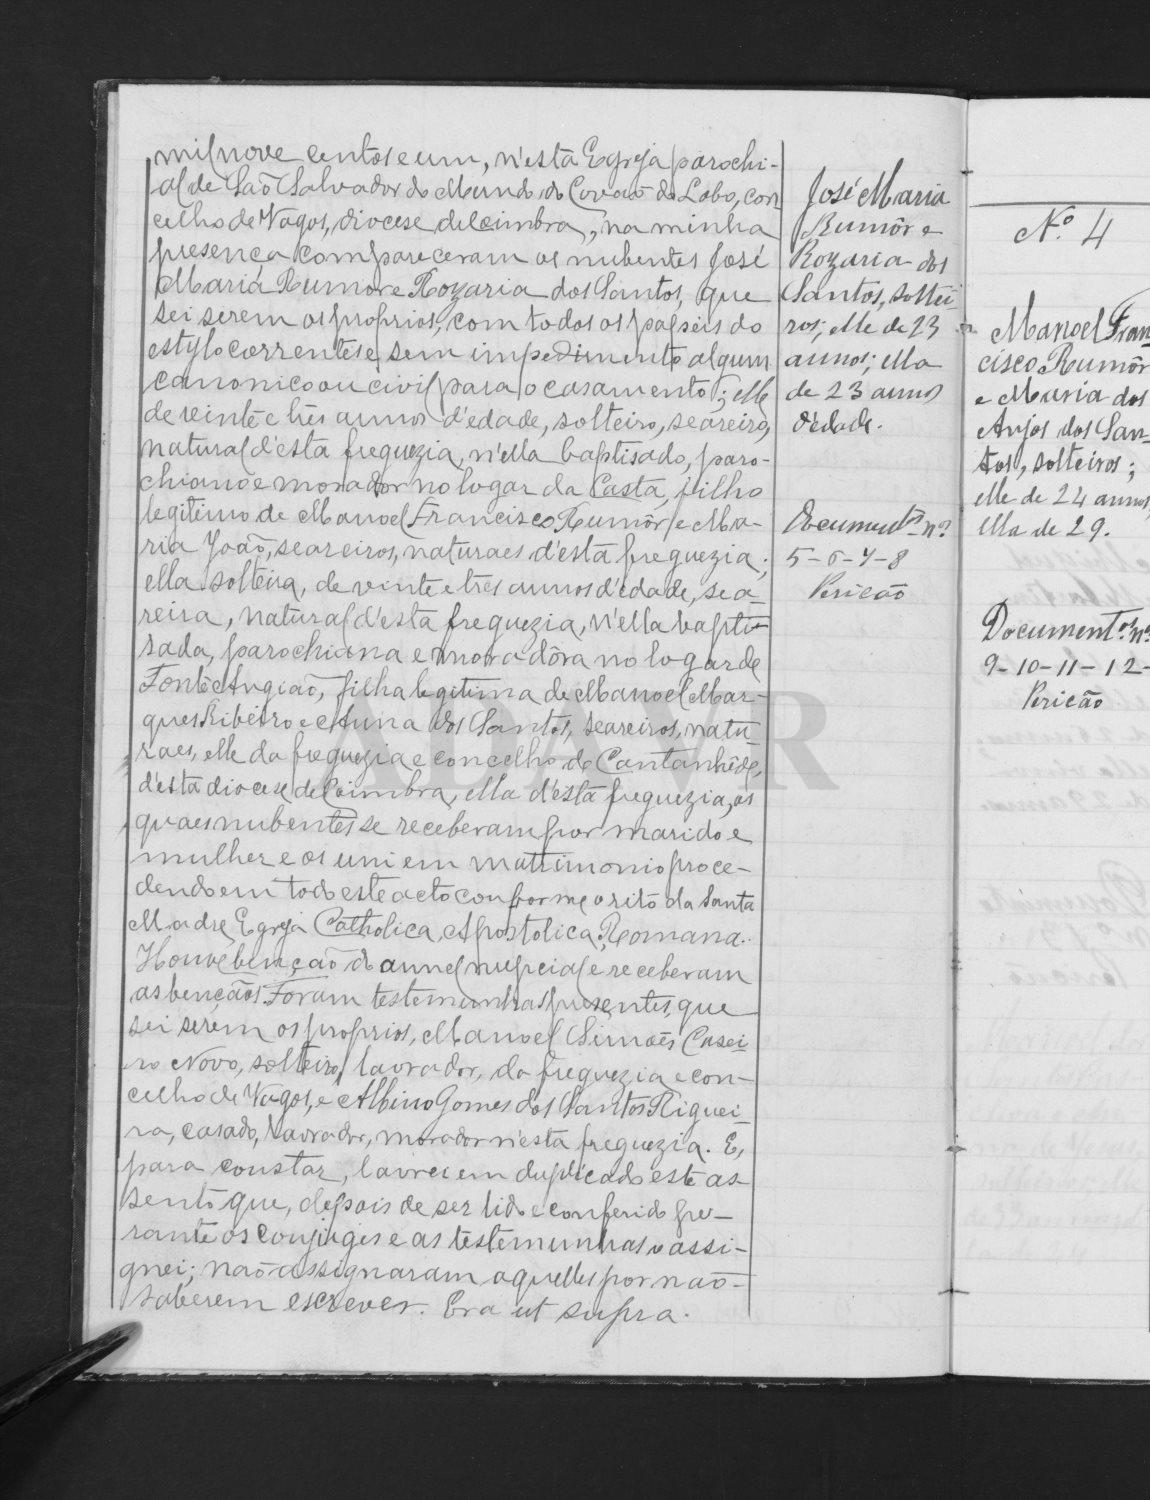 mil nove centos e um, n'esta Egreja parochi-
al de São Salvador do Mundo do Covão do Lobo, con
celho de Vagos, diocese de Coimbra, na minha
presença compareceram os nubentes José
Maria Rumôr e Rozaria dos Santos, que
sei serem os proprios, com todos os papeis do
estylo correntes e sem impedimento algum
canonico ou civil para o casamento; elle
de vinte e trez annos d'edade, solteiro, seareiro,
natural d'esta freguezia, n'ella baptisado, paro-
chiano e morador no logar da Casta, filho
legitimo de Manoel Francisco Rumôr e Ma-
ria João, seareiros, naturaes d'esta freguezia;
ella solteira, de vinte e tres annos d'edade, sea-
reira, natural d'esta freguezia, n'ella bapti-
sada, parochiana e moradôra no logar de
Fonte Angião, filha legitima de Manoel Mar-
ques Ribeiro e Anna dos Santos, seareiros, natu-
raes, elle da freguezia e concelho de Cantanhêde,
d'esta diocese de Coimbra, ella d'esta freguezia, os
quaes nubentes se receberam por marido e
mulher e os uni em mattrimonio proce-
dendo em todo este acto conforme o rito da Santa
Madre Egreja Catholica, Apostolica, Romana.
Houve benção do annel nupcial e receberam
as bençãos. Foram testemunhas presentes, que
sei serem os proprios, Manoel Simões Casei-
ro Novo, solteiro, lavrador, da freguezia e con-
celho de Vagos, e Albino Gomes dos Santos Riguei-
ra, casado, lavrador, morador n'esta freguezia. E,
para constar, lavrei em duplicado este as-
sento que, depois de ser lido e conferido pe-
rante os conjuges e as testemunhas o assi-
gnei; não assignaram aquelles por não
saberem escrever. Era ut supra.
José Maria
Rumôr e
Rozaria dos
Santos, soltei-
ros; elle de 23
annos; ella
de 23 annos
d'edade.
Documentos nº
5-6-7-8
Pericão
Nº 4
Manoel Fran-
cisco Rumôr
e Maria dos
Anjos dos San-
tos, solteiros;
elle de 24 annos,
ella de 29.
Documentos nº
9-10-11-12-
Pericão
ADAVR